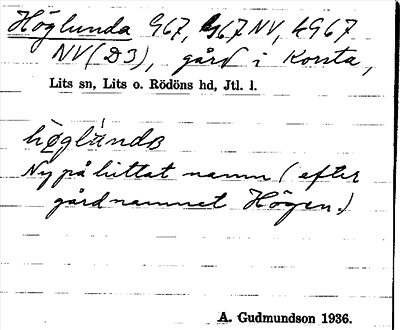 Höglunda 967, 467 NV, 4967
NV (D3), gård i Korsta,
Lits sn, Lits o. Rödöns hd, Jtl. l.
Nypåhittat namn (efter
gårdnamnet Högen.)
A. Gudmundson 1936.